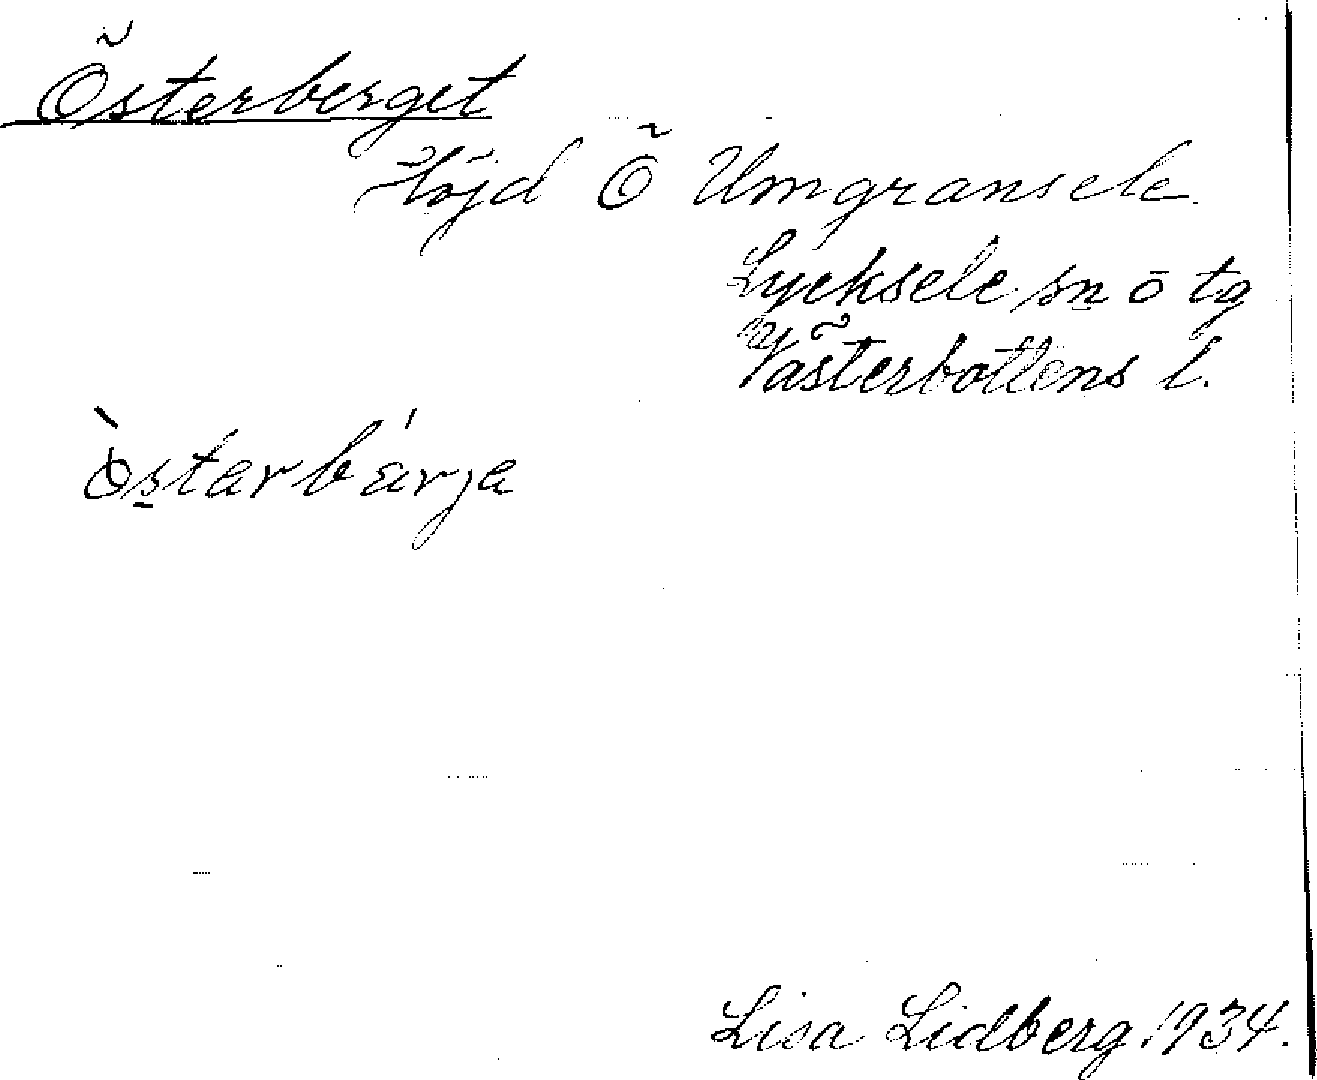 Österberget
Höjd Ö Umgransele.
Lycksele sn o tg
Västerbottens l.
òstarbárja
Lisa Lidberg 1934.